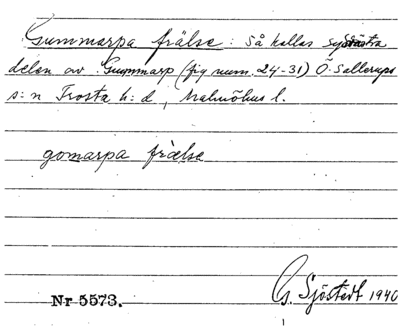 Gummarpa frälse: så kallas sydöstra
delen av Gummarp (fig num. 24-31) Ö. Sallerups
s:n Frosta h:d, Malmöhus l.
gomarpa frälse
Nr 5573.
G. Sjöstedt 1940